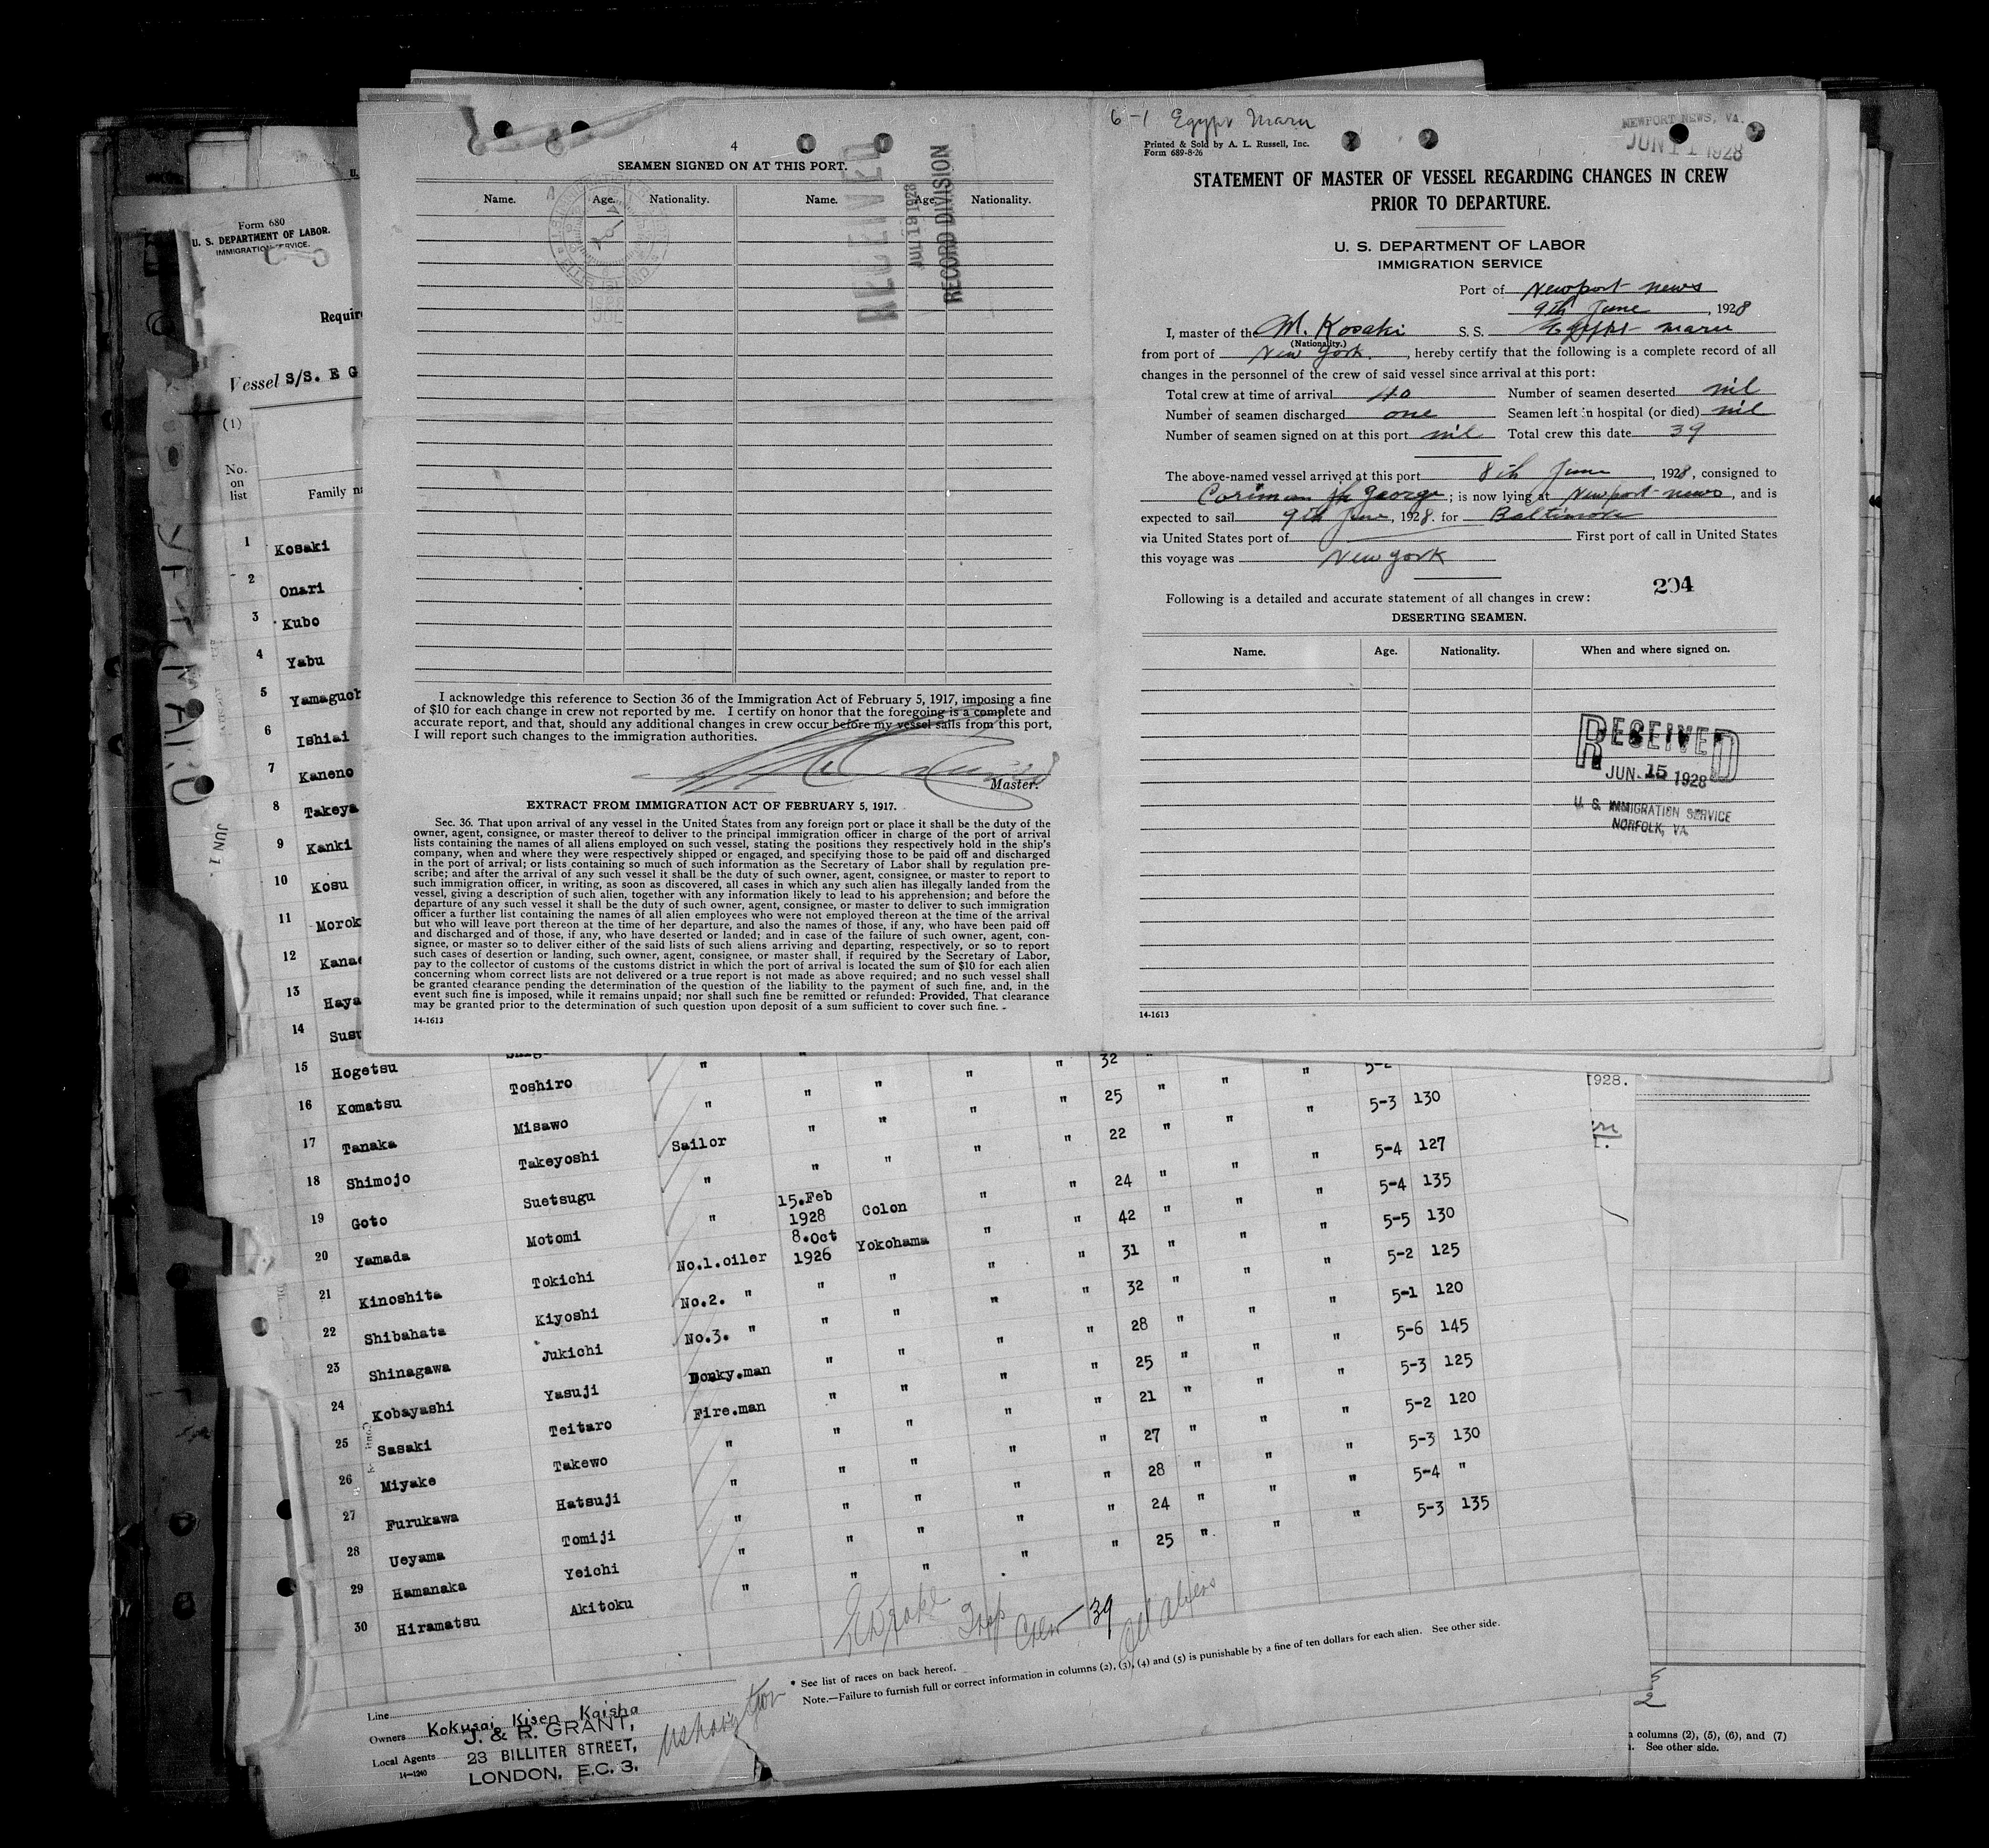 4
SEAMEN SIGNED ON AT THIS PORT.
Name. Age. Nationality. Name. Age. Nationality.
RECEIVED
JUL 19 1928
RECORD DIVISION
I acknowledge this reference to Section 36 of the Immigration Act of February 5, 1917, imposing a fine
of $10 for each change in crew not reported by me. I certify on honor that the foregoing is a complete and
accurate report, and that, should any additional changes in crew occur before my vessel sails from this port,
I will report such changes to the immigration authorities.
Master.
EXTRACT FROM IMMIGRATION ACT OF FEBRUARY 5, 1917.
Sec. 36. That upon arrival of any vessel in the United States from any foreign port or place it shall be the duty of the
owner, agent, consignee, or master thereof to deliver to the principal immigration officer in charge of the port of arrival
lists containing the names of all aliens employed on such vessel, stating the positions they respectively hold in the ship's
company, when and where they were respectively shipped or engaged, and specifying those to be paid off and discharged
in the port of arrival; or lists containing so much of such information as the Secretary of Labor shall by regulation pre-
scribe; and after the arrival of any such vessel it shall be the duty of such owner, agent, consignee, or master to report to
such immigration officer, in writing, as soon as discovered, all cases in which any such alien has illegally landed from the
vessel, giving a description of such alien, together with any information likely to lead to his apprehension; and before the
departure of any such vessel it shall be the duty of such owner, agent, consignee, or master to deliver to such immigration
officer a further list containing the names of all alien employees who were not employed thereon at the time of the arrival
but who will leave port thereon at the time of her departure, and also the names of those, if any, who have been paid off
and discharged and of those, if any, who have deserted or landed; and in case of the failure of such owner, agent, con-
signee, or master so to deliver either of the said lists of such aliens arriving and departing, respectively, or so to report
such cases of desertion or landing, such owner, agent, consignee, or master shall, if required by the Secretary of Labor,
pay to the collector of customs of the customs district in which the port of arrival is located the sum of $10 for each alien
concerning whom correct lists are not delivered or a true report is not made as above required; and no such vessel shall
be granted clearance pending the determination of the question of the liability to the payment of such fine, and, in the
event such fine is imposed, while it remains unpaid; nor shall such fine be remitted or refunded: Provided, That clearance
may be granted prior to the determination of such question upon deposit of a sum sufficient to cover such fine.
14-1613
6-1 Egypt Maru
Printed & Sold by A. L. Russell, Inc.
Form 689-8-26
NEWPORT NEWS, VA.
JUN 11 1928
STATEMENT OF MASTER OF VESSEL REGARDING CHANGES IN CREW
PRIOR TO DEPARTURE.
U. S. DEPARTMENT OF LABOR
IMMIGRATION SERVICE
Port of Newport News
9th June, 1928
I, master of the M. Kosaki S. S. Egypt maru
(Nationality.)
from port of New York., hereby certify that the following is a complete record of all
changes in the personnel of the crew of said vessel since arrival at this port:
Total crew at time of arrival 40 Number of seamen deserted nil
Number of seamen discharged one Seamen left in hospital (or died) nil
Number of seamen signed on at this port nil Total crew this date 39
The above-named vessel arrived at this port 8th June, 1928, consigned to
George; is now lying at Newport-news, and is
expected to sail 9th June, 1928. for Baltimore
via United States port of First port of call in United States
this voyage was New York
204
Following is a detailed and accurate statement of all changes in crew:
DESERTING SEAMEN.
Name. Age. Nationality. When and where signed on.
RECEIVED
JUN 15 1928
U. S. IMMIGRATION SERVICE
NORFOLK, VA.
14-1613
Form 680
U. S. DEPARTMENT OF LABOR.
IMMIGRATION SERVICE.
Requir
Vessel S/S. E G
(1)
No.
on
list
Family na
1 Kosaki
2 Onari
3 Kubo
4 Yabu
5 Yamaguch
6 Ishiai
7 Kaneno
8 Takeya
9 Kanki
10 Kosu
11 Morok
12 Kana
13 Haya
14 Susu
15 Hogetsu " " " " " 32 " 5-2
16 Komatsu Toshiro " " " " " 25 " " " 5-3 130
17 Tanaka Misawo Sailor " " " " 22 " " " 5-4 127
18 Shimojo Takeyoshi " " " " " 24 " " " 5-4 135
19 Goto Suetsugu " 15.Feb 1928 Colon " " 42 " " " 5-5 130
20 Yamada Motomi No.1.oiler 8.Oct 1926 Yokohama " " 31 " " " 5-2 125
21 Kinoshita Tokichi No.2. " " " " " 32 " " " 5-1 120
22 Shibahata Kiyoshi No.3. " " " " " 28 " " " 5-6 145
23 Shinagawa Jukichi Donky.man " " " " 25 " " " 5-3 125
24 Kobayashi Yasuji Fire.man " " " " 21 " " " 5-2 120
25 Sasaki Teitaro " " " " " 27 " " " 5-3 130
26 Miyake Takewo " " " " " 28 " " " 5-4 "
27 Furukawa Hatsuji " " " " " 24 " " " 5-3 135
28 Ueyama Tomiji " " " " " 25 " "
29 Hamanaka Yeichi " " " "
30 Hiramatsu Akitoku "
Insp Crew 39
All aliens
* See list of races on back hereof.
Note.—Failure to furnish full or correct information in columns (2), (3), (4) and (5) is punishable by a fine of ten dollars for each alien. See other side.
Line
Owners Kokusai Kisen Kaisha
Local Agents J. & R. GRANT,
23 BILLITER STREET,
LONDON, E.C. 3.
14-1240
JUN 1
1928.
n columns (2), (5), (6), and (7)
See other side.